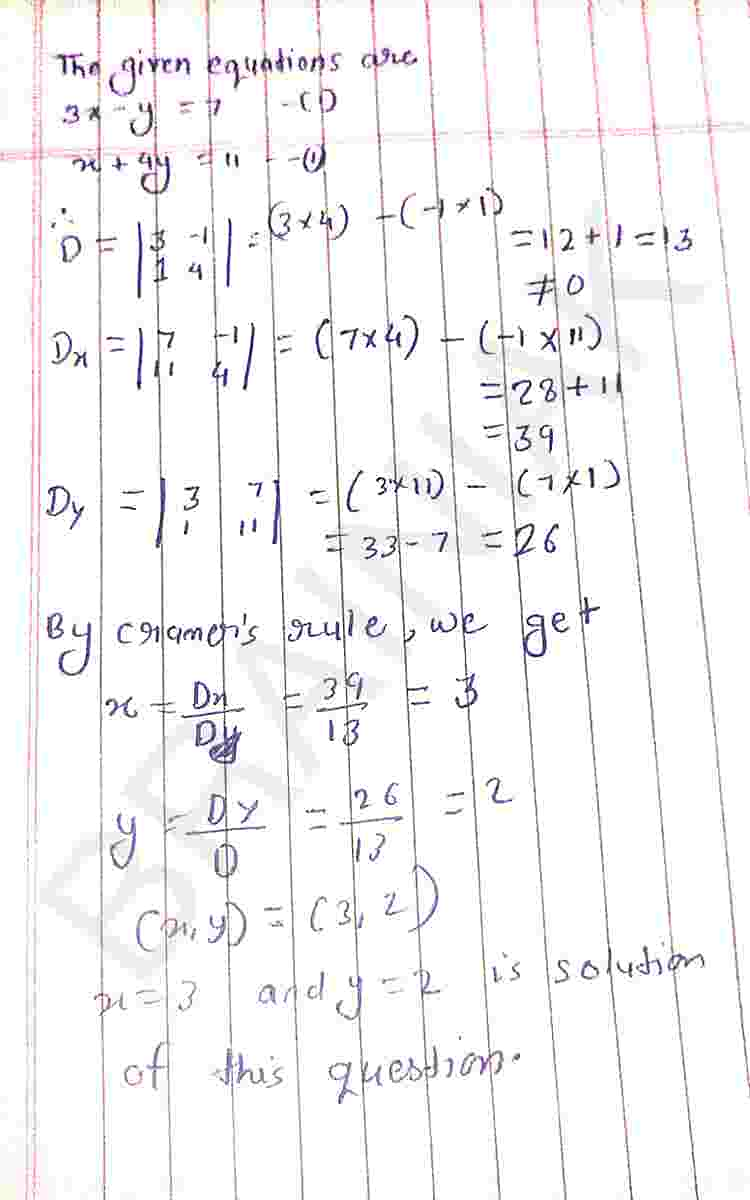 The given equations are
3x - y = 7 -(1)
x + 4y = 11 - -(1)
∴ D = | 3 -1 | = (3×4) - (-1×1)
| 1 4 | = 12 + 1 = 13
≠ 0
Dx = | 7 -1 | = (7×4) - (-1 × 11)
| 11 4 | = 28 + 11
= 39
Dy = | 3 7 | = (3×11) - (7×1)
| 1 11 | = 33 - 7 = 26
By cramer's rule, we get
x = Dx / D = 39 / 13 = 3
y = Dy / D = 26 / 13 = 2
(x, y) = (3, 2)
x = 3 and y = 2 is solution
of this question.
BRAINLY